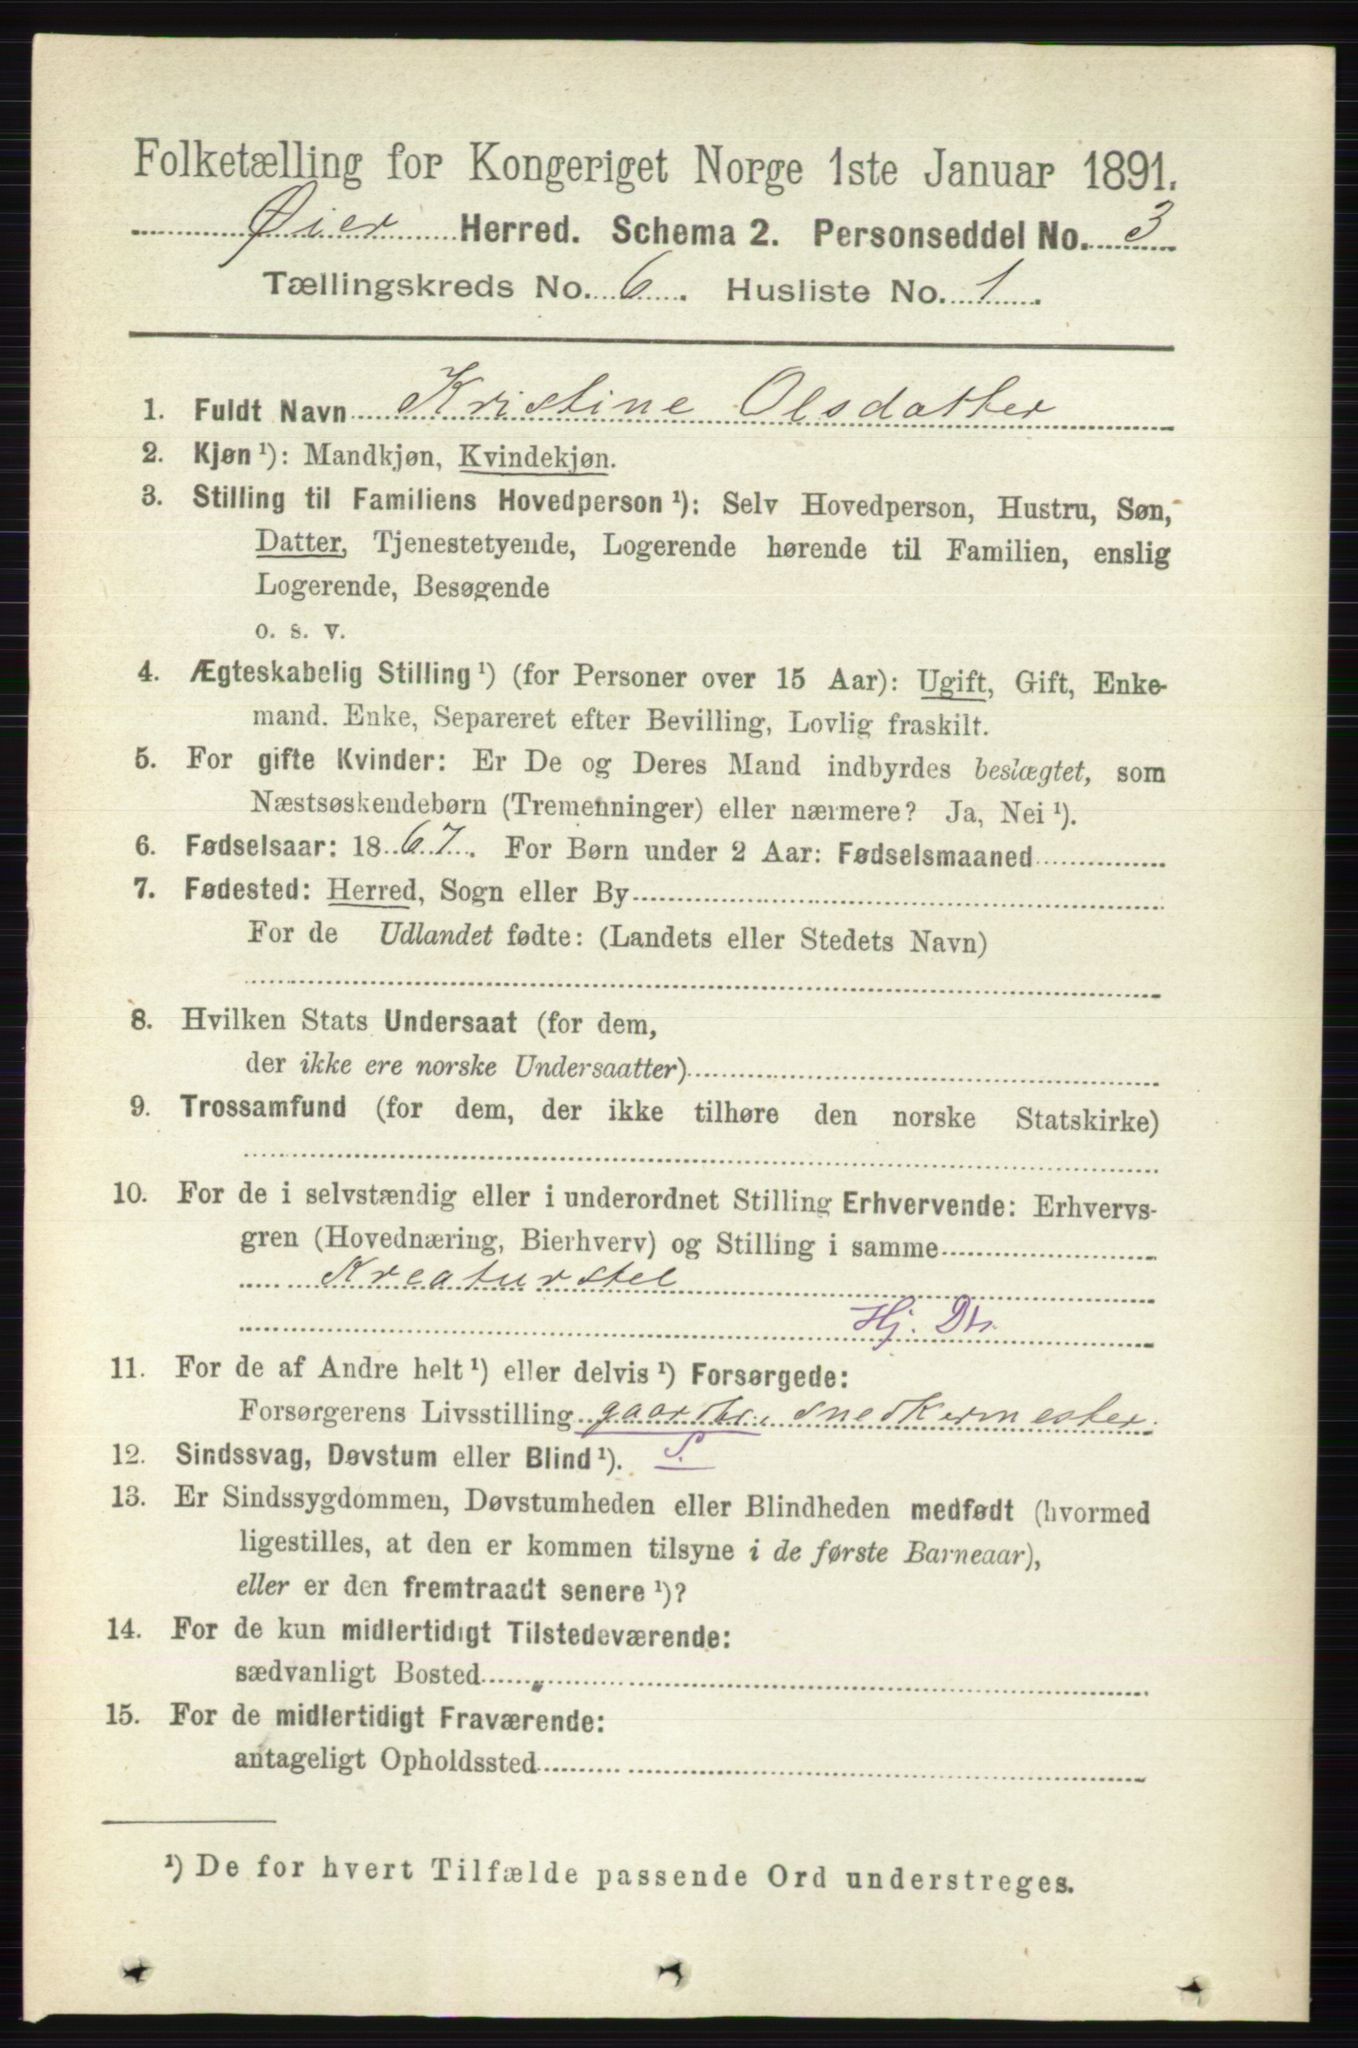 Folketælling for Kongeriget Norge 1ste Januar 1891.
Øier Herred. Schema 2. Personseddel No. 3
Tællingskreds No. 6. Husliste No. 1.
1. Fuldt Navn Kristine Olsdatter
2. Kjøn ¹): Mandkjøn, Kvindekjøn.
3. Stilling til Familiens Hovedperson ¹): Selv Hovedperson, Hustru, Søn,
Datter, Tjenestetyende, Logerende hørende til Familien, enslig
Logerende, Besøgende
o. s. v.
4. Ægteskabelig Stilling ¹) (for Personer over 15 Aar): Ugift, Gift, Enke-
mand. Enke, Separeret efter Bevilling, Lovlig fraskilt.
5. For gifte Kvinder: Er De og Deres Mand indbyrdes beslægtet, som
Næstsøskendebørn (Tremenninger) eller nærmere? Ja, Nei ¹).
6. Fødselsaar: 1867. For Børn under 2 Aar: Fødselsmaaned
7. Fødested: Herred, Sogn eller By
For de Udlandet fødte: (Landets eller Stedets Navn)
8. Hvilken Stats Undersaat (for dem,
der ikke ere norske Undersaatter)
9. Trossamfund (for dem, der ikke tilhøre den norske Statskirke)
10. For de i selvstændig eller i underordnet Stilling Erhvervende: Erhvervs-
gren (Hovednæring, Bierhverv) og Stilling i samme
Kreaturstel
Hj. Dtr.
11. For de af Andre helt ¹) eller delvis ¹) Forsørgede:
Forsørgerens Livsstilling gaardbr. snedkermester.
12. Sindssvag, Døvstum eller Blind ¹). S.
13. Er Sindssygdommen, Døvstumheden eller Blindheden medfødt (hvormed
ligestilles, at den er kommen tilsyne i de første Barneaar),
eller er den fremtraadt senere ¹)?
14. For de kun midlertidigt Tilstedeværende:
sædvanligt Bosted
15. For de midlertidigt Fraværende:
antageligt Opholdssted
¹) De for hvert Tilfælde passende Ord understreges.